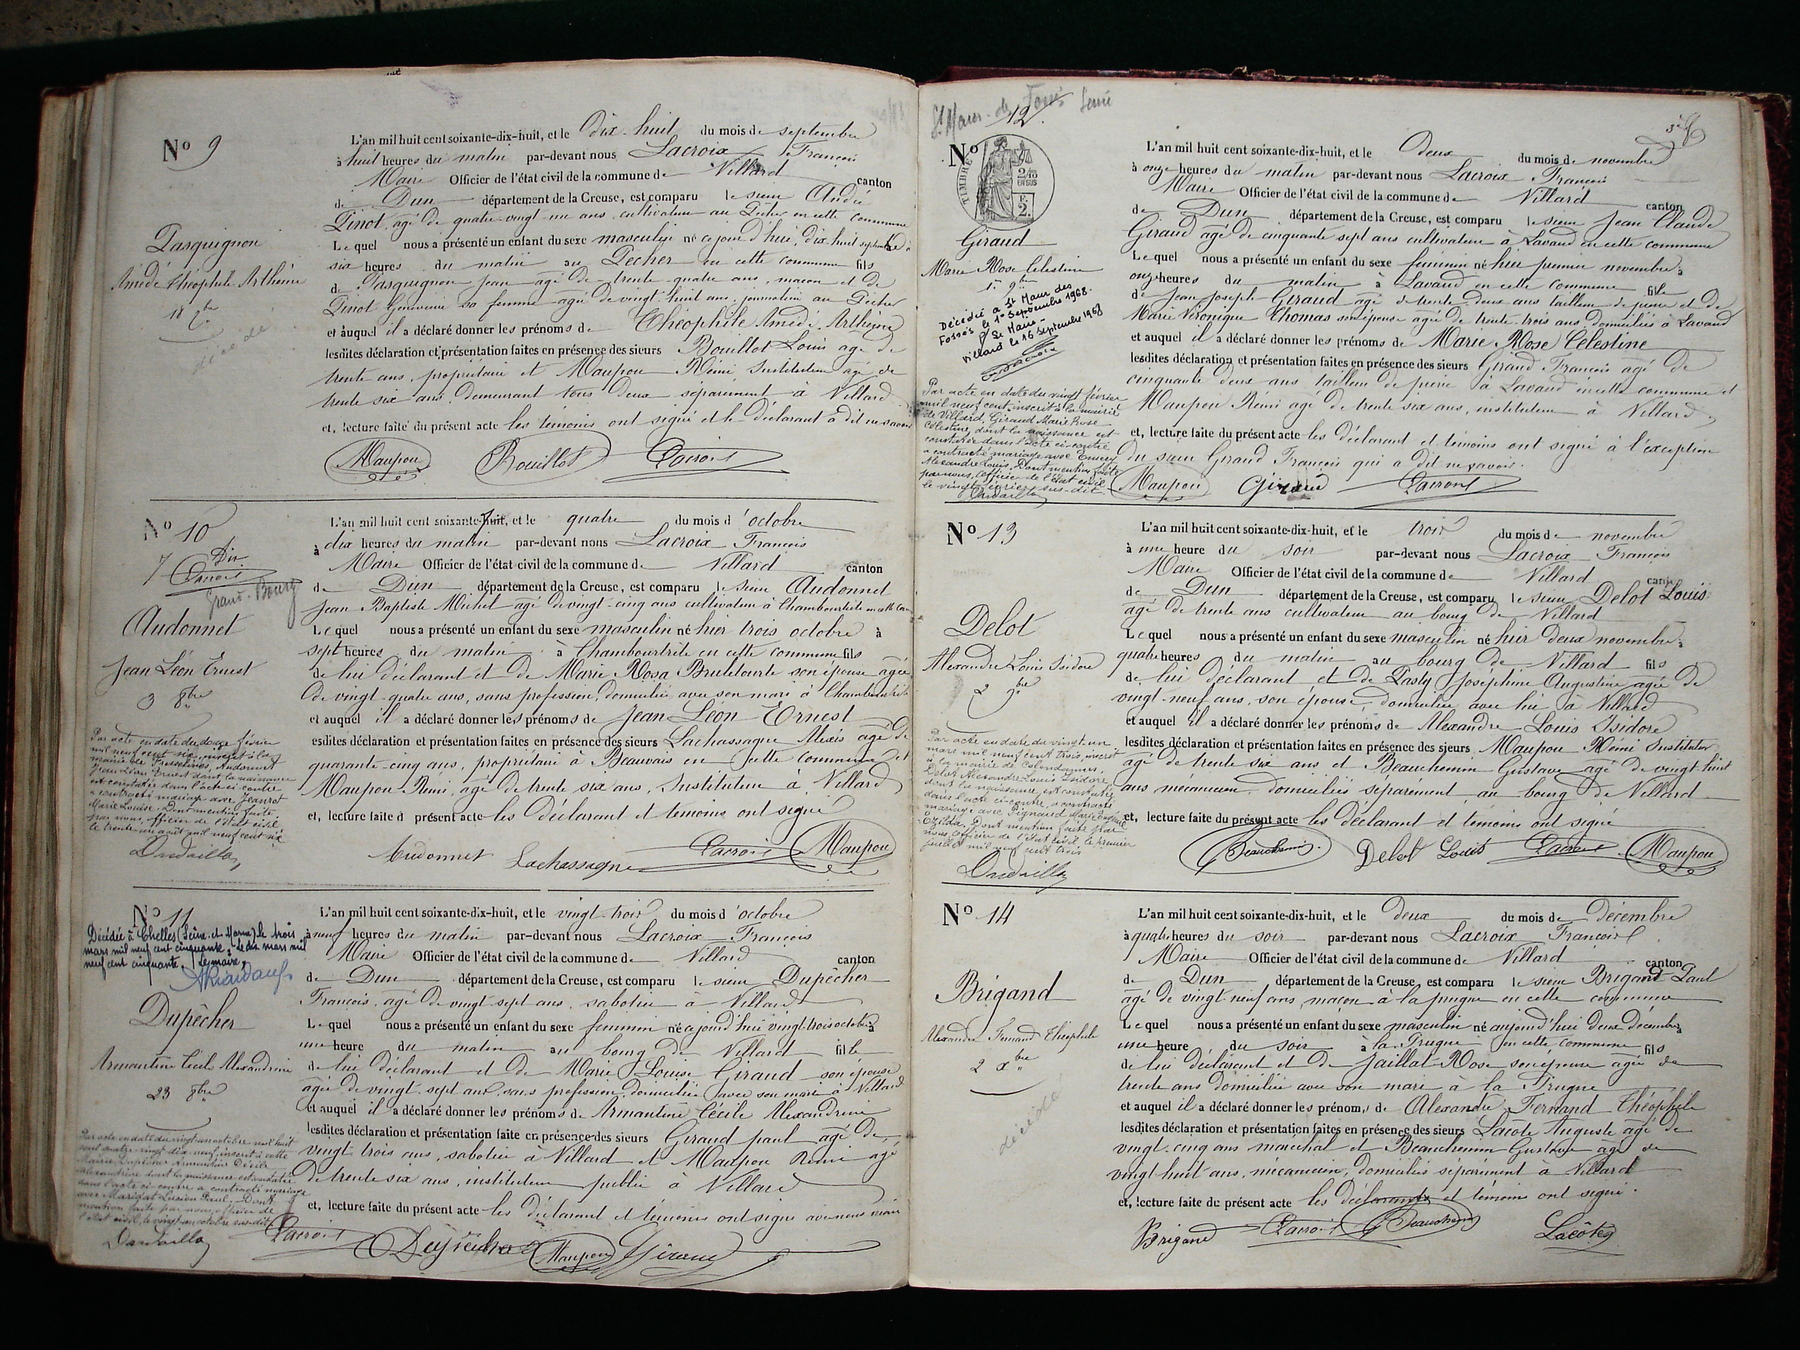 No 9
Pasquignon
Amédé Théophile Arthème
18 7bre
décédé
L'an mil huit cent soixante-dix-huit, et le dix-huit du mois de septembre
à huit heures du matin par-devant nous Lacroix François
Maire Officier de l'état civil de la commune de Villard canton
de Dun département de la Creuse, est comparu le sieur André
Pinot, agé de quatre-vingt un ans, cultivateur au Pêcher en cette commune
Lequel nous a présenté un enfant du sexe masculin né ce jourd'hui, dix huit septembre à
six heures du matin au Pecher en cette commune fils
de Pasquignon Jean agé de trente quatre ans, maçon et de
Pinot sa femme agée de vingt-huit ans, journalière au Pêcher
et auquel il a déclaré donner les prénoms de Théophile Amédé Arthème
lesdites déclaration et présentation faites en présence des sieurs Bouillot Louis agé de
trente ans, propriétaire et Maupou Rémi Instituteur agé de
trente six ans, demeurant tous deux séparément à Villard
et, lecture faite du présent acte les témoins ont signé et le déclarant a dit ne savoir
Maupou Bouillot Lacroix
No 10
7
Dix
Lacroix
Grand-Bourg
Audonnet
Jean Léon Ernest
3 8bre
Par acte en date du douze février
mil neuf cent six, inscrit à la
mairie de Audonnet
Jean Léon Ernest dont la naissance
est constatée dans l'acte ci-contre
a contracté mariage avec Jeanrot
Marie Louise. Dont mention faite
par nous, officier de l'état civil
le trente un août mil neuf cent six
Dardaillon
L'an mil huit cent soixante-dix-huit, et le quatre du mois d'octobre
à dix heures du matin par-devant nous Lacroix François
Maire Officier de l'état civil de la commune de Villard canton
de Dun département de la Creuse, est comparu le sieur Audonnet
Jean Baptiste Michel agé de vingt-cinq ans cultivateur à Chambourtrete en cette com
Lequel nous a présenté un enfant du sexe masculin né hier trois octobre à
sept heures du matin à Chambourtrete en cette commune fils
de lui déclarant et de Marie Rosa Bruletourte son épouse agée
de vingt-quatre ans, sans profession, domiciliée avec son mari à Chambourtrete
et auquel il a déclaré donner les prénoms de Jean Léon Ernest
esdites déclaration et présentation faites en présence des sieurs Lachassagne Alexis agé de
quarante-cinq ans, propriétaire à Beauvais en cette commune et
Maupou Rémi, agé de trente six ans, Instituteur à Villard
et, lecture faite d présent acte les déclarant et témoins ont signé
Audonnet Lachassagne Lacroix Maupou
No 11
Décédée à Chelles (Seine-et-Marne) le trois
mars mil neuf cent cinquante. Le dix mars mil
neuf cent cinquante, Le maire,
Dupêcher
Armantine Cécile Alexandrine
23 8bre
Par acte en date du vingt un octobre mil huit
cent quatre-vingt dix-neuf, inscrit à cette
Mairie, Dupêcher Armantine Cécile
Alexandrine dont la naissance est constatée
dans l'acte ci-contre a contracté mariage
avec Lucien Paul. Dont
mention faite par nous, officier de
l'état civil, le vingt un octobre sus-dit
Dardaillon
L'an mil huit cent soixante-dix-huit, et le vingt trois du mois d'octobre
à neuf heures du matin par-devant nous Lacroix François
Maire Officier de l'état civil de la commune de Villard canton
de Dun département de la Creuse, est comparu le sieur Dupêcher
François, agé de vingt sept ans, sabotier à Villard
Lequel nous a présenté un enfant du sexe féminin né ajourd'hui vingt trois octobre à
une heure du matin au bourg de Villard fille
de lui déclarant et de Marie Louise Giraud son épouse
agée de vingt sept ans, sans profession, domiciliée avec son mari à Villard
et auquel il a déclaré donner les prénoms de Armantine Cécile Alexandrine
lesdites déclaration et présentation faite en présence des sieurs Giraud paul agé de
vingt trois ans, sabotier à Villard et Maupou Rémi agé
de trente six ans, instituteur public à Villard
et, lecture faite du présent acte les déclarant et témoins ont signé avec nous maire
Lacroix Dupêcher Maupou Giraud
St Maur-des-Fossés Seine
No 12
TIMBRE
2/10 EN SUS
F. 2.
Giraud
Marie Rose Célestine
1er 9bre
Décédée à St Maur des
Fossés le 1er Septembre 1968.
St Maur
Villard le 16 septembre 1968
Par acte en date du vingt février
mil neuf cent, inscrit à la mairie
de Villard, Giraud Marie Rose
Célestine, dont la naissance est
constatée dans l'acte ci-contre
a contracté mariage avec
Alexandre Louis. Dont mention faite
par nous, officier de l'état civil
le vingt février sus-dit
Dardaillon
L'an mil huit cent soixante-dix-huit, et le deux du mois de novembre
à onze heures du matin par-devant nous Lacroix François
Maire Officier de l'état civil de la commune de Villard canton
de Dun département de la Creuse, est comparu le sieur Jean Claude
Giraud agé de cinquante sept ans cultivateur à Lavaud en cette commune
Lequel nous a présenté un enfant du sexe féminin né hier premier novembre à
onze heures du matin à Lavaud en cette commune fille
de Jean Joseph Giraud agé de trente deux ans tailleur de pierre et de
Marie Véronique Thomas son épouse agée de trente trois ans domiciliés à Lavaud
et auquel il a déclaré donner les prénoms de Marie Rose Célestine
lesdites déclaration et présentation faites en présence des sieurs Giraud François agé de
cinquante deux ans tailleur de pierre à Lavaud en cette commune et
Maupou Rémi agé de trente six ans, instituteur à Villard,
et, lecture faite du présent acte les déclarant et témoins ont signé à l'exception
du sieur Giraud François qui a dit ne savoir.
Maupou Giraud Lacroix
No 13
Delot
Alexandre Louis Isidore
2 9bre
Par acte en date du vingt un
mars mil neuf cent trois, inscrit
à la mairie de
Delot Alexandre Louis Isidore
dont la naissance est constatée
dans l'acte ci-contre, a contracté
mariage avec Pignaud Marie
Dont mention faite par
nous Officier de l'état civil le premier
juillet mil neuf cent trois
Dardaillon
L'an mil huit cent soixante-dix-huit, et le trois du mois de novembre
à une heure du soir par-devant nous Lacroix François
Maire Officier de l'état civil de la commune de Villard canton
de Dun département de la Creuse, est comparu le sieur Delot Louis
agé de trente ans cultivateur au bourg de Villard
Lequel nous a présenté un enfant du sexe masculin né hier deux novembre à
quatre heures du matin au bourg de Villard fils
de lui déclarant et de Lasty Joséphine Augustine agée de
vingt-neuf ans, son épouse, domiciliée avec lui à Villard
et auquel il a déclaré donner les prénoms de Alexandre Louis Isidore
lesdites déclaration et présentation faites en présence des sieurs Maupou Rémi Instituteur
agé de trente six ans et Beauchemin Gustave agé de vingt huit
ans mécanicien, domiciliés séparément au bourg de Villard
et, lecture faite du présent acte les déclarant et témoins ont signé
Beauchemin Delot Louis Lacroix Maupou
No 14
Brigand
Alexandre Fernand Théophile
2 Xbre
décédé
L'an mil huit cent soixante-dix-huit, et le deux du mois de décembre
à quatre heures du soir par-devant nous Lacroix François
Maire Officier de l'état civil de la commune de Villard canton
de Dun département de la Creuse, est comparu le sieur Brigand Paul
agé de vingt neuf ans, maçon à la prugne en cette commune
Lequel nous a présenté un enfant du sexe masculin né aujourd'hui deux décembre à
une heure du soir à la Prugne en cette commune fils
de lui déclarant et de Jaillat Rose son épouse agée de
trente ans domiciliée avec son mari à la Prugne
et auquel il a déclaré donner les prénoms de Alexandre Fernand Théophile
lesdites déclaration et présentation faites en présence des sieurs Lacote Auguste agé de
vingt-cinq ans maréchal et Beauchemin Gustave agé de
vingt huit ans, mécanicien, domiciliés séparément à Villard
et, lecture faite du présent acte les déclarants et témoins ont signé.
Brigand Lacroix Beauchemin Lacôte